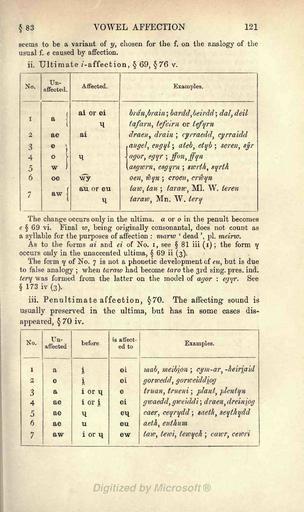 § 83 VOWEL AFFECTION 121
seems to be a variant of y, chosen for the f. on the analogy of the
usual f. e caused by affection.
ii. Ultimate i-affection, § 69, § 76 v.
No. Un-affected. Affected. Examples.
1 a ai or ei brân, brain; bardd, beirdd; dal, deil
ɥ tafarn, tefeirn or tefɥrn
2 ae ai draen, drain; cyrraedd, cyrraidd
3 e ɥ angel, engɥl; ateb, etɥb; seren, sɥ̂r
4 o ɥ agor, egɥr; ffon, ffɥn
5 w ɥ asgwrn, esgɥrn; swrth, sɥrth
6 oe wy oen, ŵyn; croen, crŵyn
7 aw au or eu taw, tau; taraw, Ml. W. tereu
ɥ taraw, Mn. W. terɥ
The change occurs only in the ultima. a or o in the penult becomes
e § 69 vi. Final w, being originally consonantal, does not count as
a syllable for the purposes of affection: marw 'dead', pl. meirw.
As to the forms ai and ei of No. 1, see § 81 iii (1); the form ɥ
occurs only in the unaccented ultima, § 69 ii (3).
The form ɥ of No. 7 is not a phonetic development of eu, but is due
to false analogy; when taraw had become taro the 3rd sing. pres. ind.
terɥ was formed from the latter on the model of agor : egɥr. See
§ 173 iv (3).
iii. Penultimate affection, § 70. The affecting sound is
usually preserved in the ultima, but has in some cases dis-
appeared, § 70 iv.
No. Un-affected before is affect-ed to Examples.
1 a i̯ ei mab, meibion; cym-ar, -heiriaid
2 e i̯ ei gorwedd, gorweiddiog
3 a i or ɥ e truan, trueni; plant, plentɥn
4 ae i or i̯ ei gwaedd, gweiddi; draen, dreiniog
5 ae ɥ eɥ caer, ceɥrɥdd; saeth, seɥthɥdd
6 ae u eu aeth, euthum
7 aw i or ɥ ew taw, tewi, tewɥch; cawr, cewri
Digitized by Microsoft ®